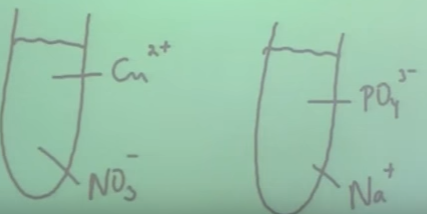 Cu²⁺
NO₃⁻
PO₄³⁻
Na⁺